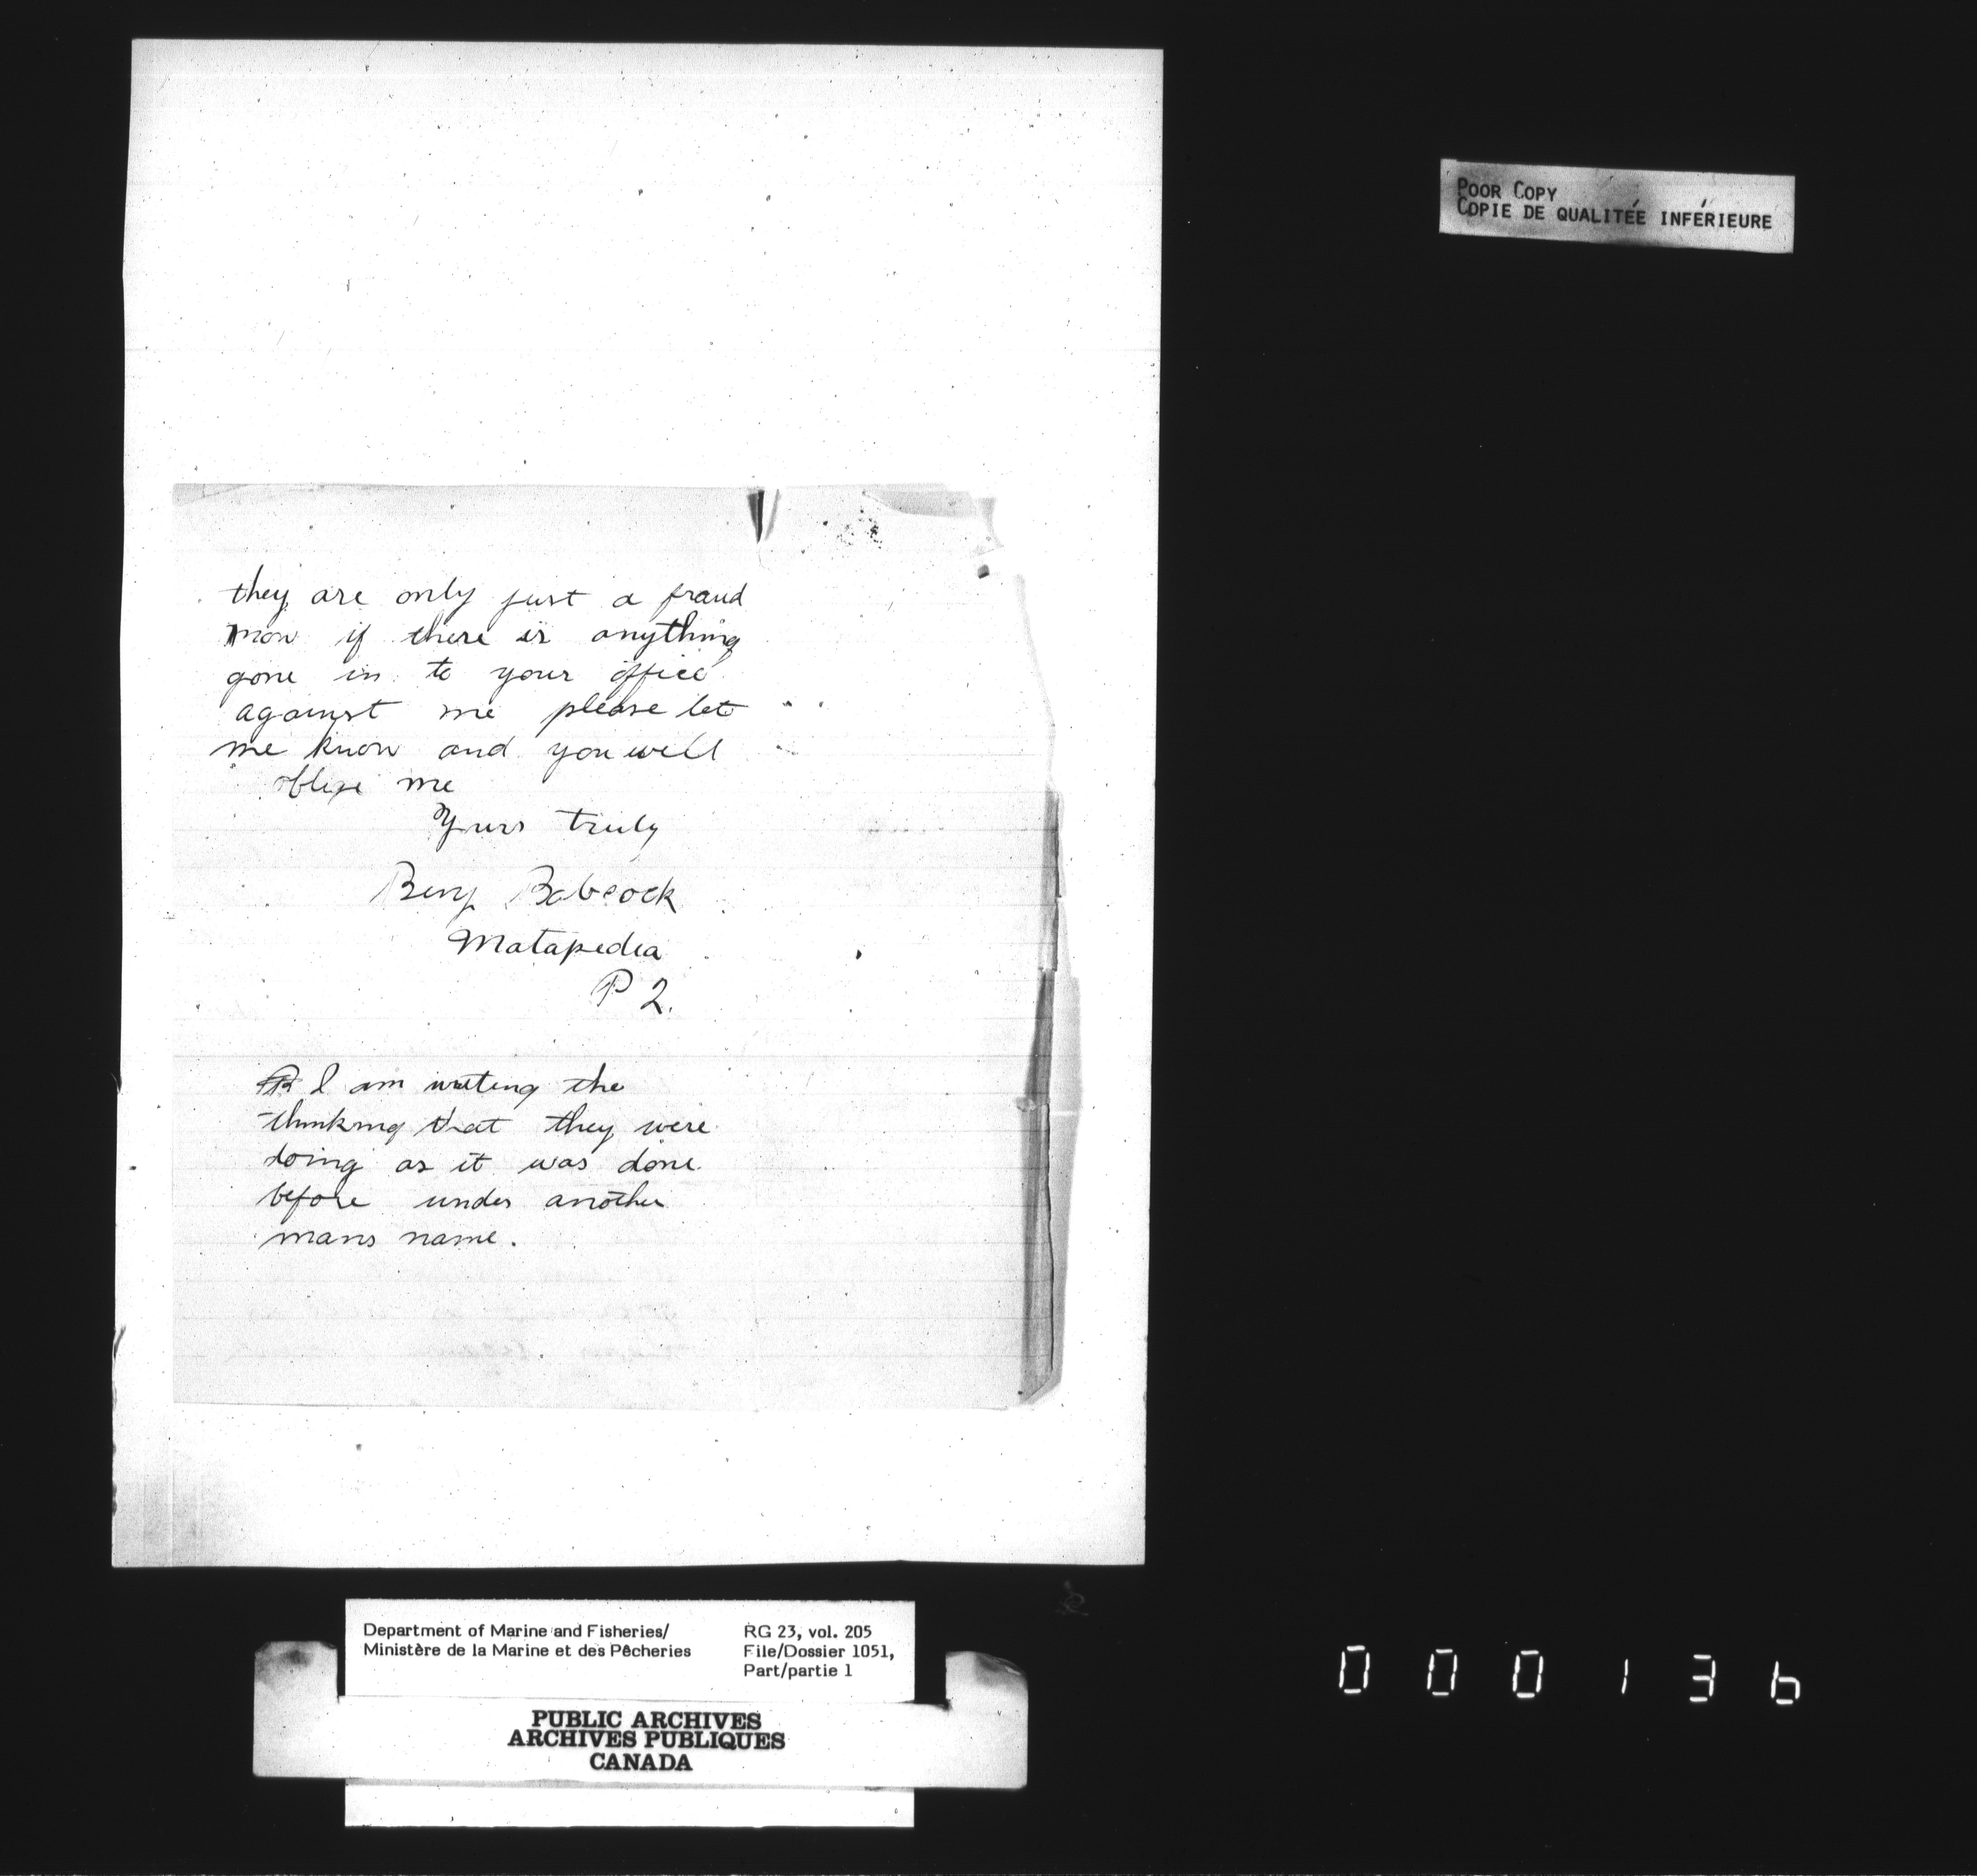 POOR COPY
COPIE DE QUALITÉE INFÉRIEURE
they are only just a fraud
now if there is anything
gone in to your office
against me please let
me know and you will
oblige me
Yours truly
Benj Babcock
Matapedia
P 2.
I am writing the
thinking that they were
doing as it was done
before under another
mans name.
Department of Marine and Fisheries/
Ministère de la Marine et des Pêcheries
RG 23, vol. 205
File/Dossier 1051,
Part/partie 1
PUBLIC ARCHIVES
ARCHIVES PUBLIQUES
CANADA
000136